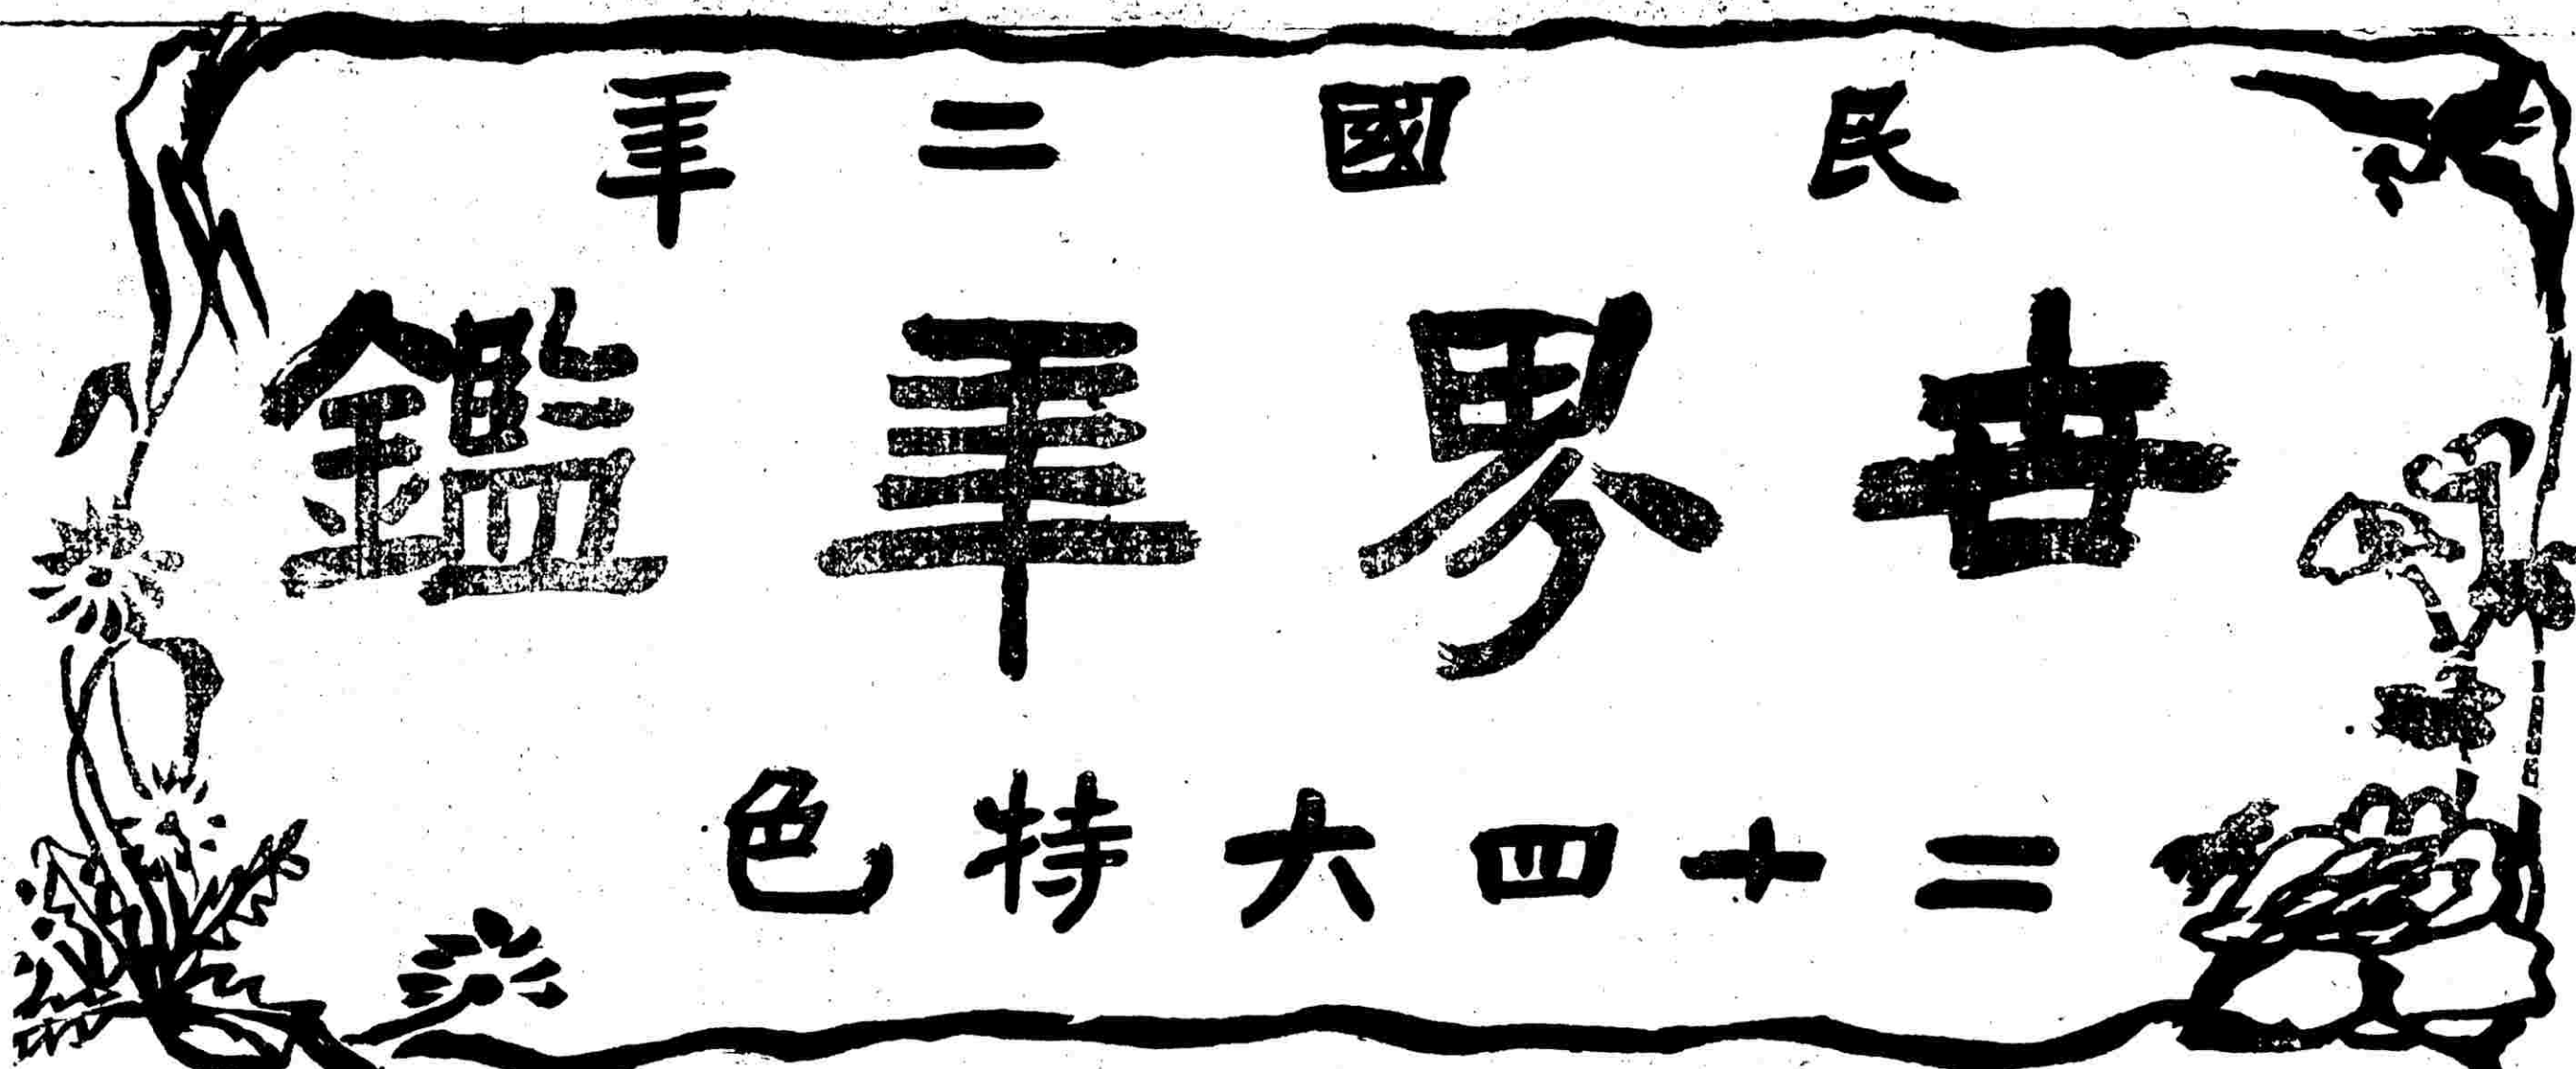 民國二年
世界年鑑
二十四大特色